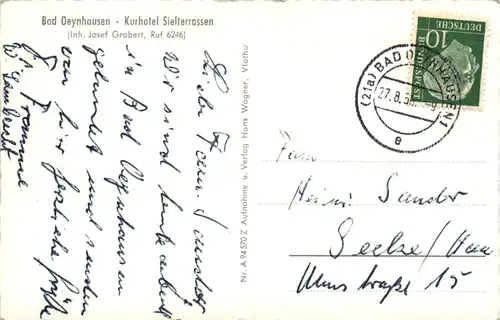 Bad Oeynhausen · Kurhotel Sielterrassen
(Inh. Josef Grabert, Ruf 6246)
Liebe Fam. Sandor
Wir sind heute abend
in Bad Oeynhausen
gelandet und senden
von hier herzliche Grüße
Nr. A 94570 Z Aufnahme u. Verlag Hans Wagner, Vlotho
DEUTSCHE
BUNDESPOST
10
(21a) BAD OEYNHAUSEN 1
27.8.
e
Fam
Heini Sandor
Seelze / Han
Ulmenstraße 15